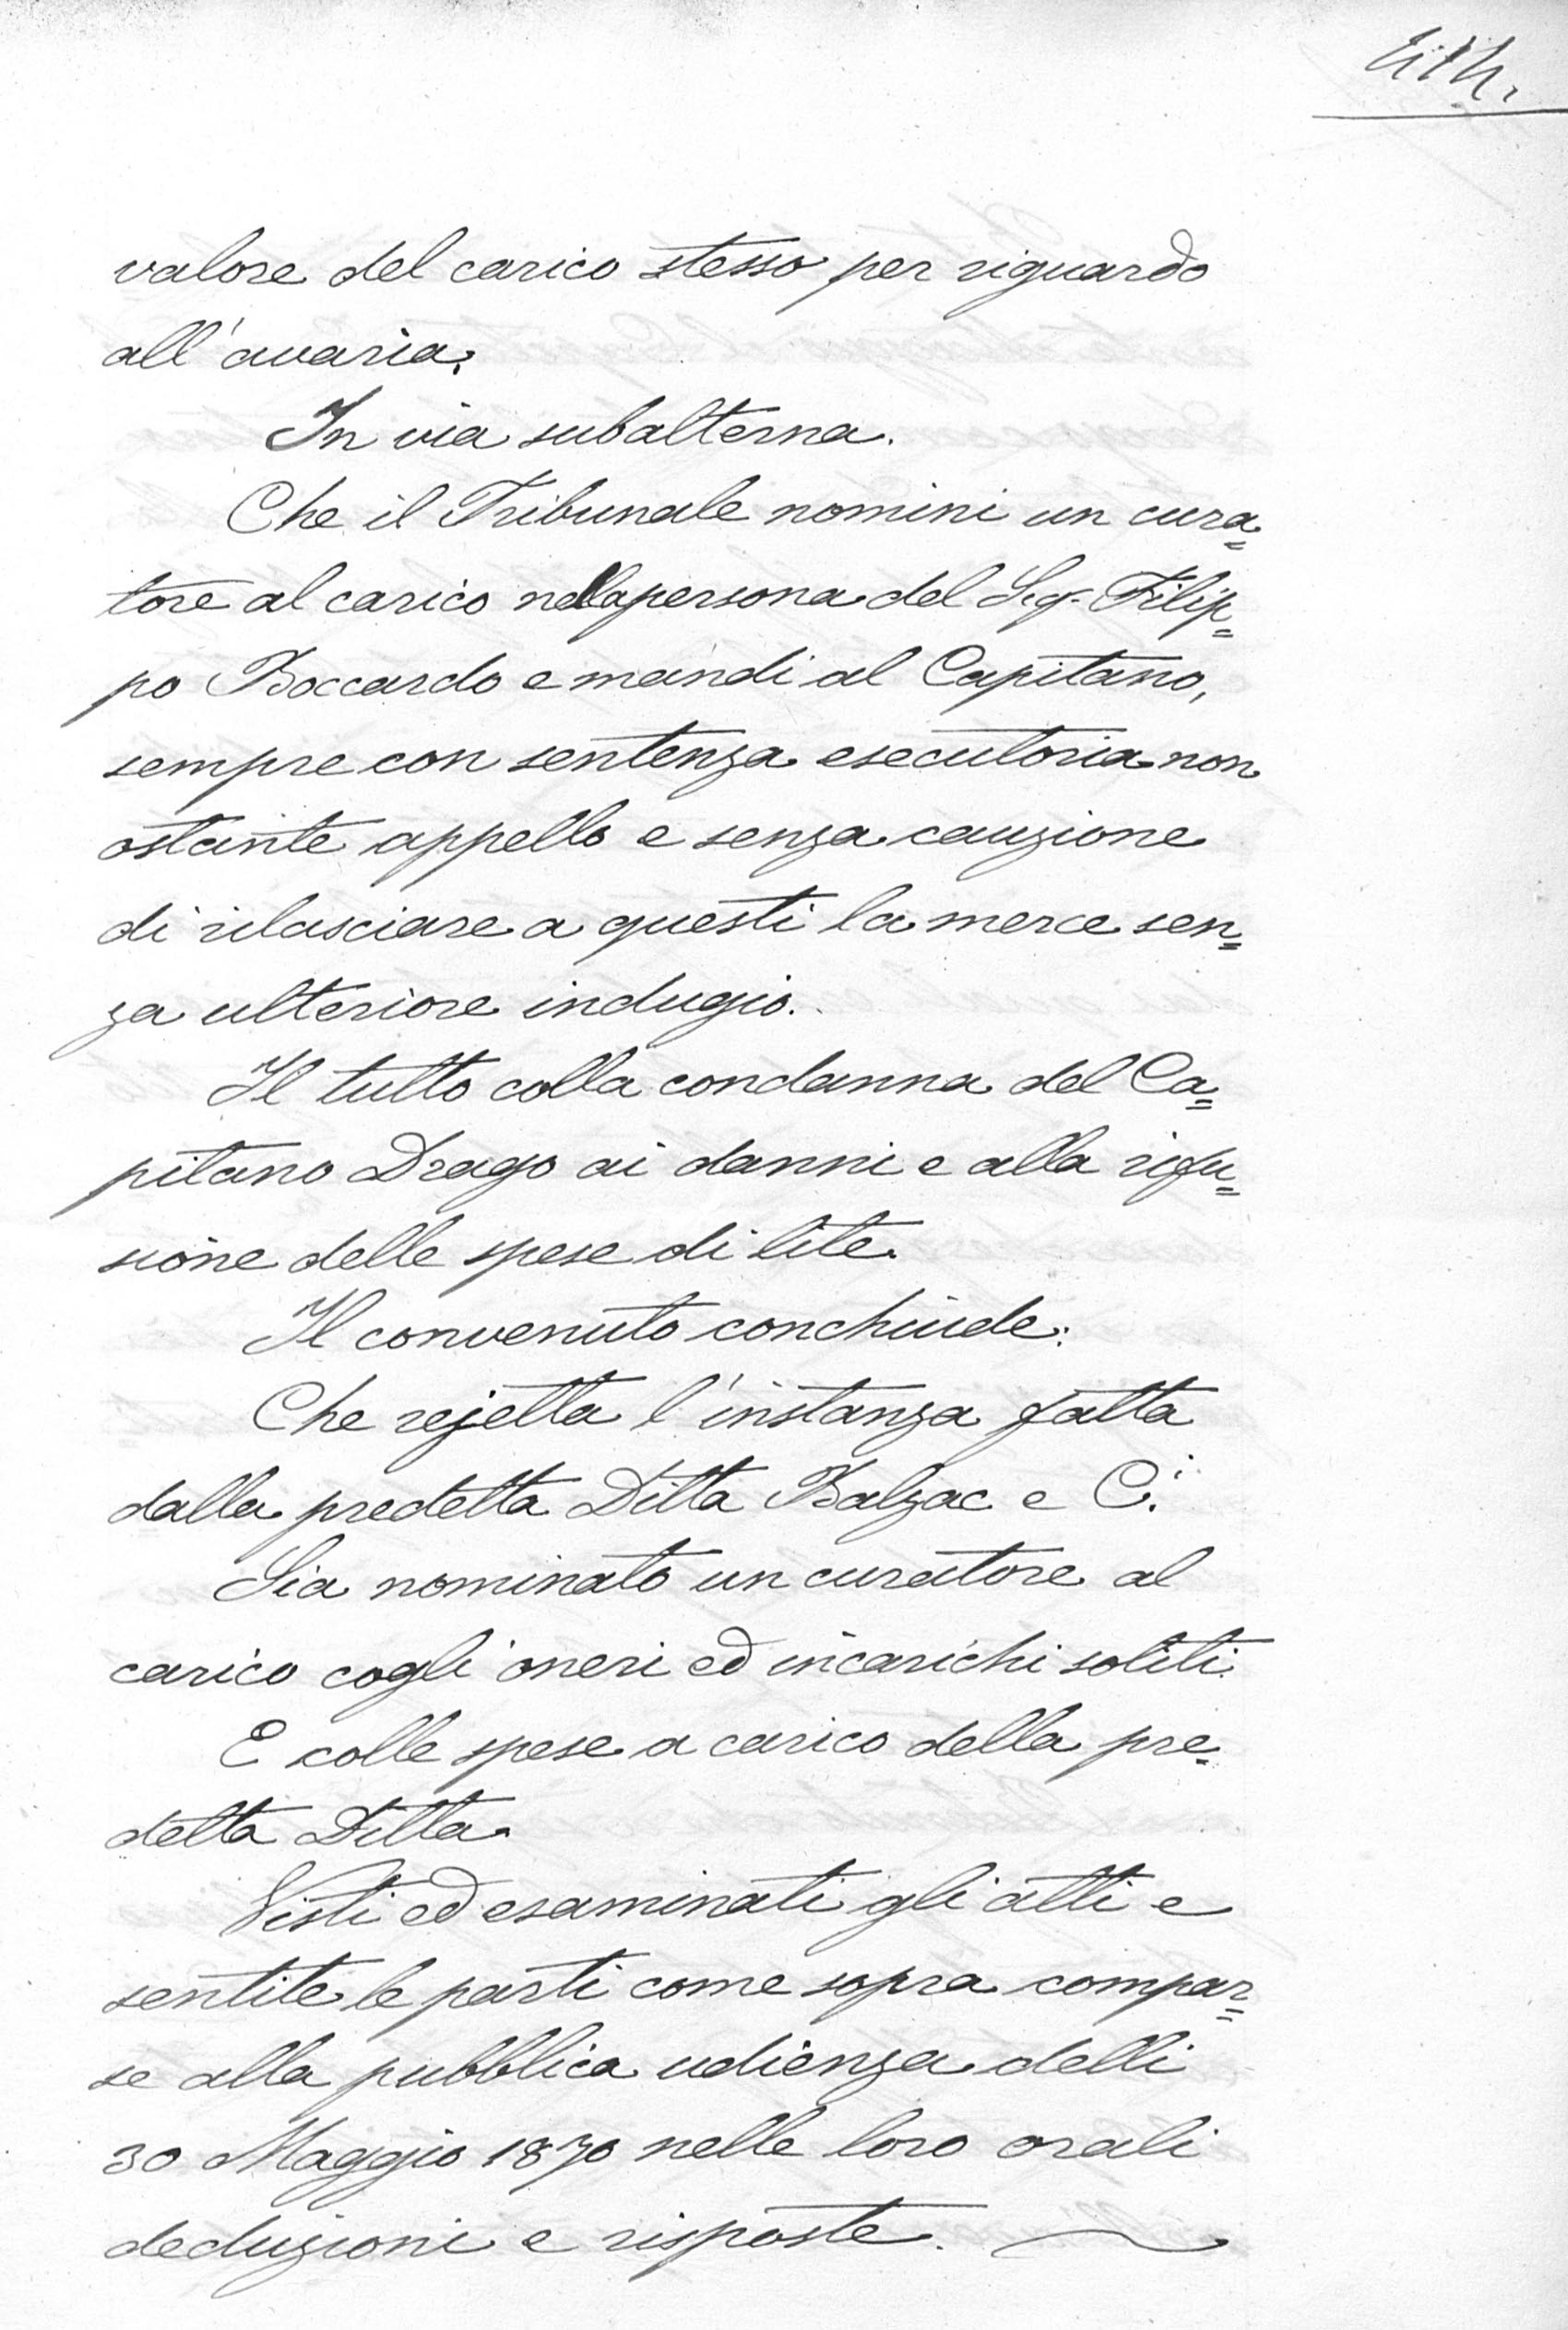 valore del carico stesso per riguardo
all'avaria.
In via subalterna.
Che il Tribunale nomini un cura=
tore al carico nella persona del Sig. Filip=
po Boccardo e mandi al Capitano,
sempre con sentenza esecutoria non
ostante appello e senza cauzione
di rilasciare a questi la merce sen=
za ulteriore indugio.
Il tutto colla condanna del Ca=
pitano Drago ai danni e alla rifu=
sione delle spese di lite.
Il convenuto conchiude:
Che rejetta l'instanza fatta
dalla predetta Ditta Balzac e C.i
Sia nominato un curatore al
carico cogli oneri ed incarichi soliti.
E colle spese a carico della pre=
detta Ditta.
Visti ed esaminati gli atti e
sentite le parti come sopra compar=
se alla pubblica udienza delli
30 Maggio 1870 nelle loro orali
deduzioni e risposte.